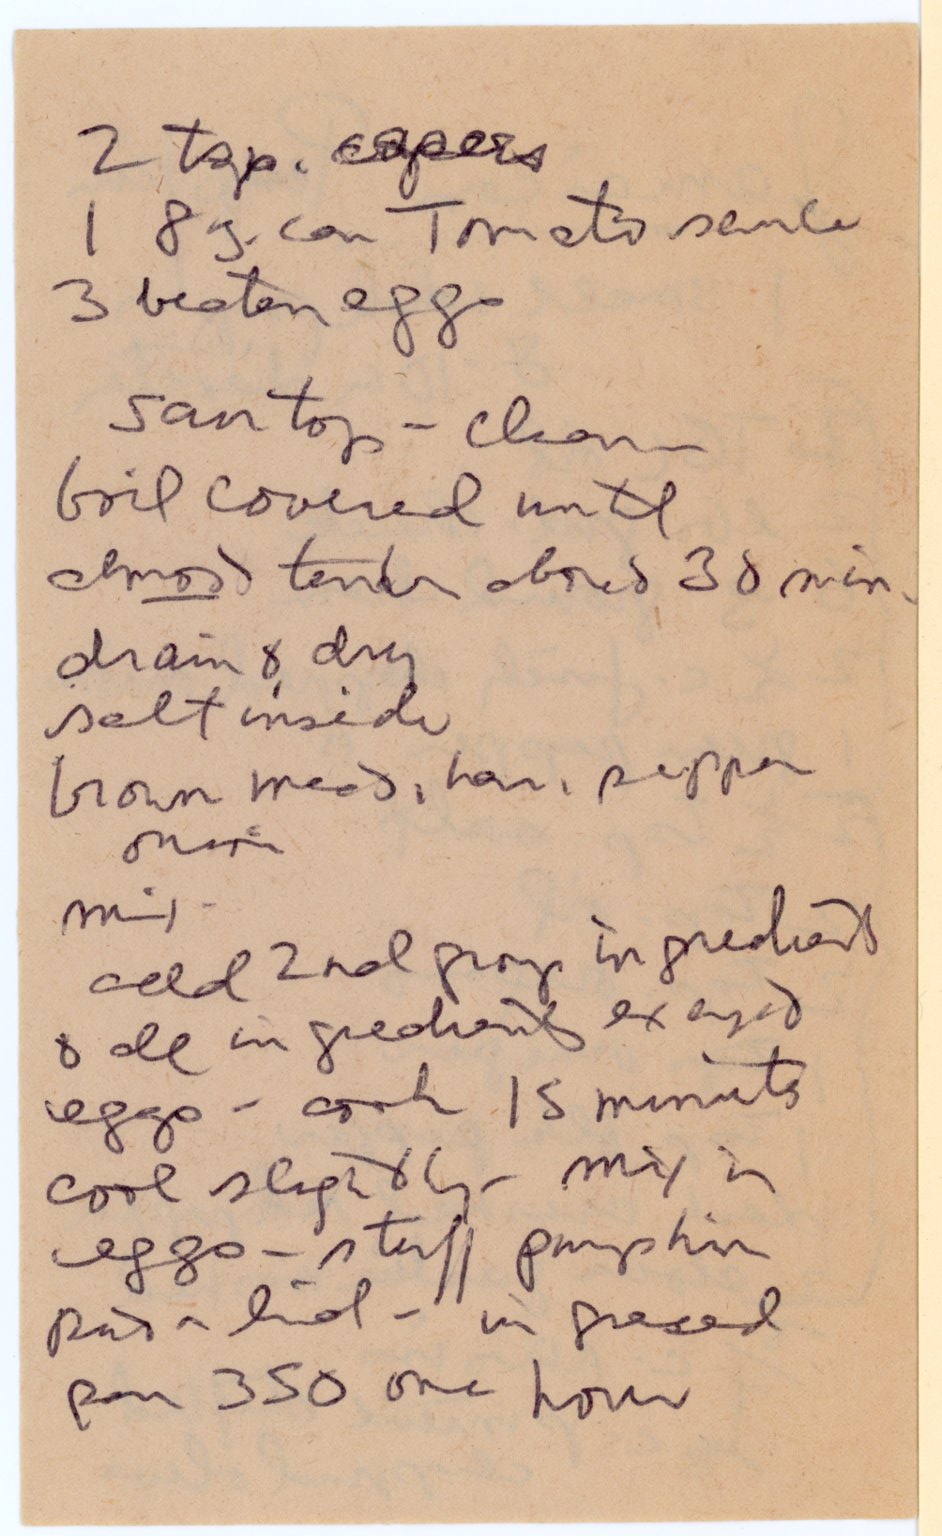 2 tsp. capers
1 8 oz. can Tomato sauce
3 beaten eggs
saw top - clean
boil covered until
almost tender about 30 min.
drain & dry
salt inside
brown meat, ham, pepper
onion
mix -
add 2nd group ingredients
& all ingredients except
eggs - cook 15 minutes
cool slightly - mix in
eggs - stuff pumpkin
put on lid - in greased
pan 350 one hour